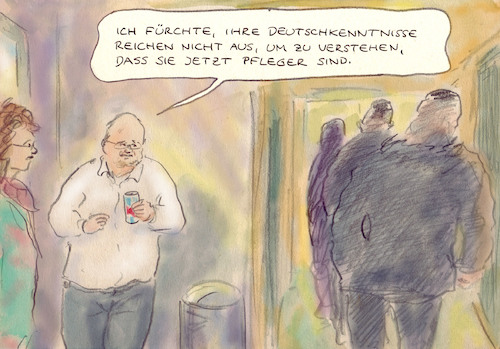 ICH FÜRCHTE, IHRE DEUTSCHKENNTNISSE
REICHEN NICHT AUS, UM ZU VERSTEHEN,
DASS SIE JETZT PFLEGER SIND.